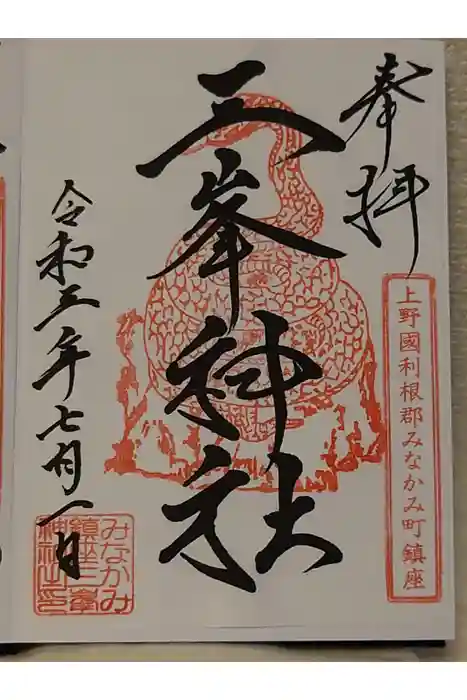 奉拝
上野國利根郡みなかみ町鎮座
三峯神社
令和三年七月一日
みなかみ
鎮座三峯
神社之印